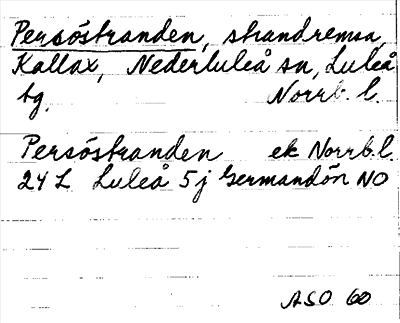 Persöstranden, strandremsa,
Kallax, Nederluleå sn, Luleå
tg. Norrb. l.
Persöstranden ek Norrb. l.
24 L Luleå 5 j Germandön NO
ASO 60